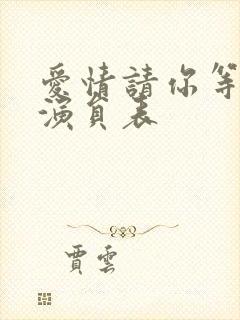 愛情請你等
演員表
賈雲